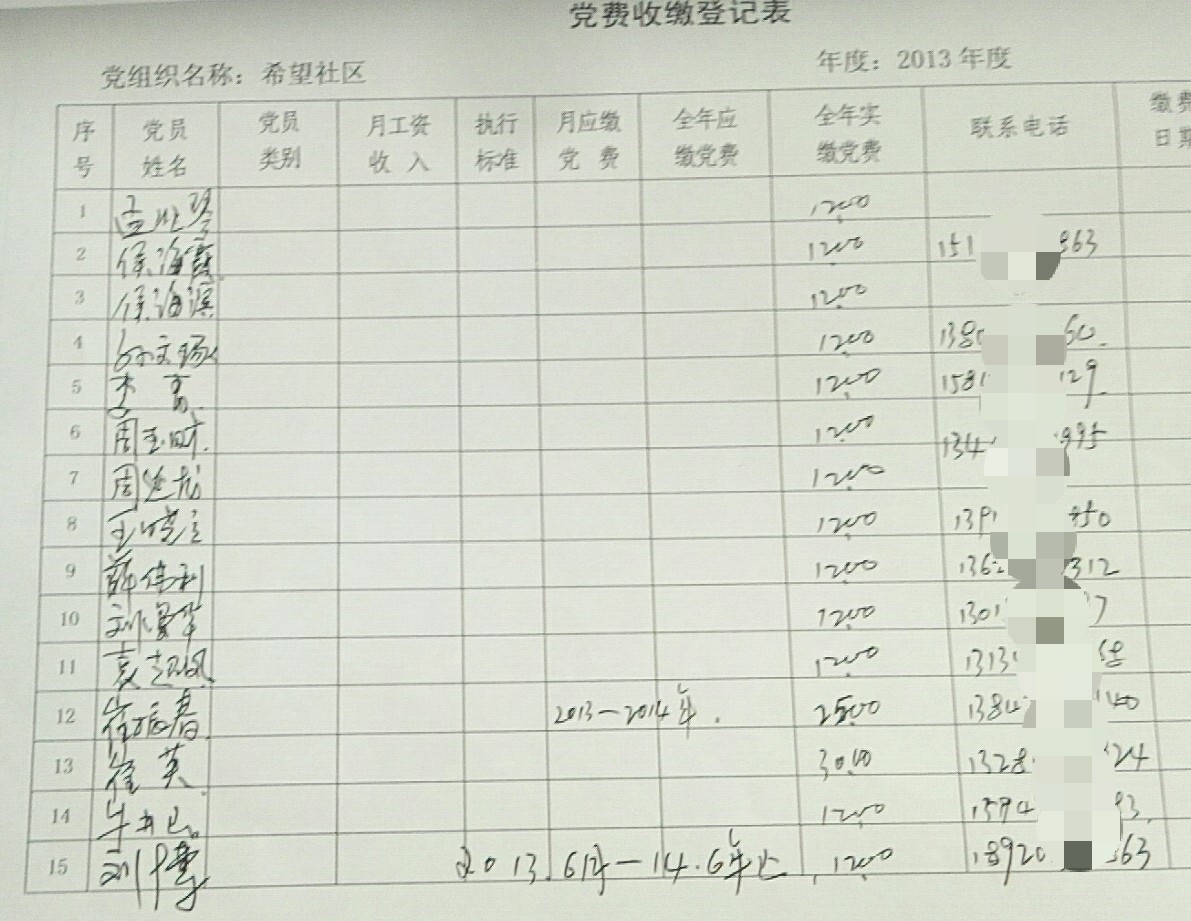 党费收缴登记表
党组织名称：希望社区 年度：2013 年度
序号 党员姓名 党员类别 月工资收入 执行标准 月应缴党费 全年应缴党费 全年实缴党费 联系电话 缴费日期
1 12.00
2 侯海霞 12.00 151 863
3 侯海滨 12.00
4 12.00 138 60
5 12.00 1581 129
6 周玉时 12.00 134 995
7 周 12.00
8 王晓 12.00 139 50
9 薛伟利 12.00 136 312
10 刘曼华 12.00 1301 7
11 袁 12.00 1313
12 崔振春 2013—2014年. 25.00 1384 40
13 崔英 30.00 1328 24
14 牛 12.00 1594 93
15 2013.6月—14.6年止 12.00 18920 363